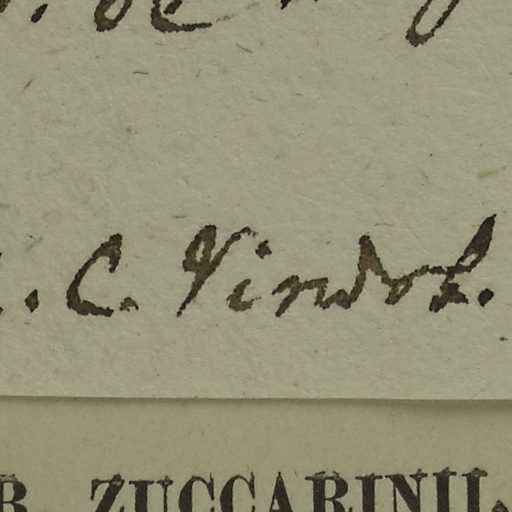 . C. Vindob.
R. ZUCCARINII.